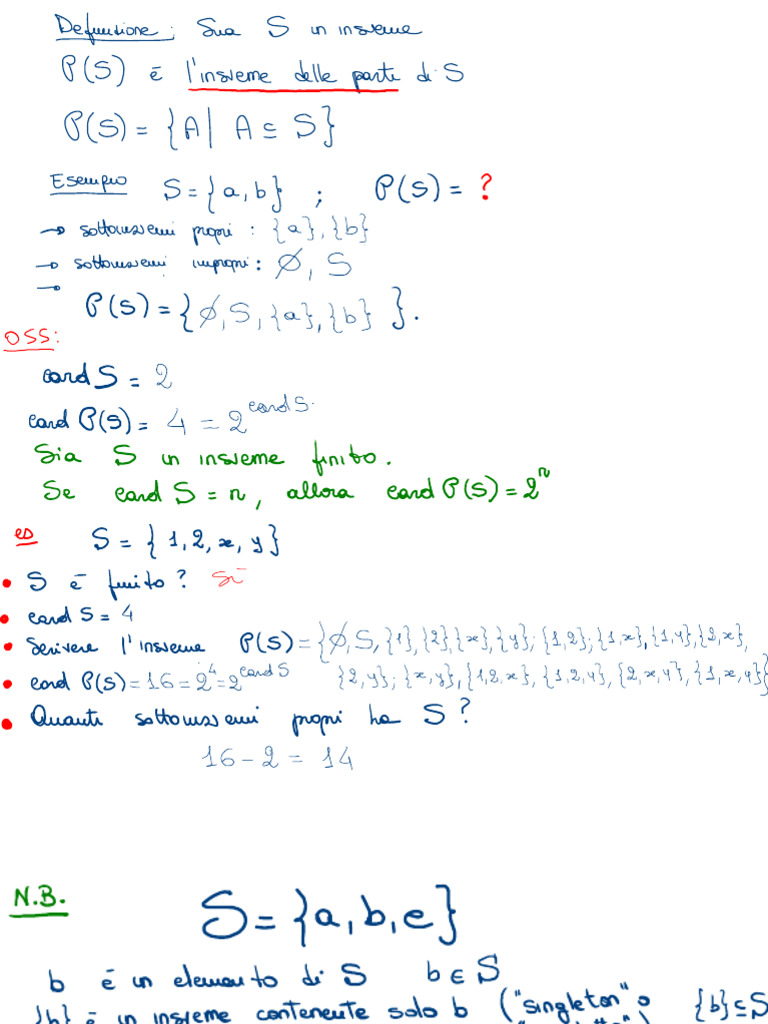 Definizione: Sia S un insieme
P(S) è l'insieme delle parti di S
P(S) = {A | A ⊆ S}
Esempio S = {a, b} ; P(S) = ?
→ sottoinsiemi propri : {a}, {b}
→ sottoinsiemi impropri : ∅, S
→
P(S) = {∅, S, {a}, {b} }.
OSS:
card S = 2
card P(S) = 4 = 2^card S
Sia S un insieme finito.
Se card S = n, allora card P(S) = 2^n
es S = { 1, 2, x, y }
• S è finito ? Sì
• card S = 4
• Scrivere l'insieme P(S) = {∅, S, {1}, {2}, {x}, {y}; {1,2}; {1,x}, {1,y}, {2,x},
{2,y}; {x,y}, {1,2,x}, {1,2,y}, {2,x,y}, {1,x,y}}
• card P(S) = 16 = 2^4 = 2^card S
• Quanti sottoinsiemi propri ha S ?
16 - 2 = 14
N.B.
S = {a, b, c}
b è un elemento di S b ∈ S
{b} è un insieme contenente solo b ("singleton" o {b} ⊆ S